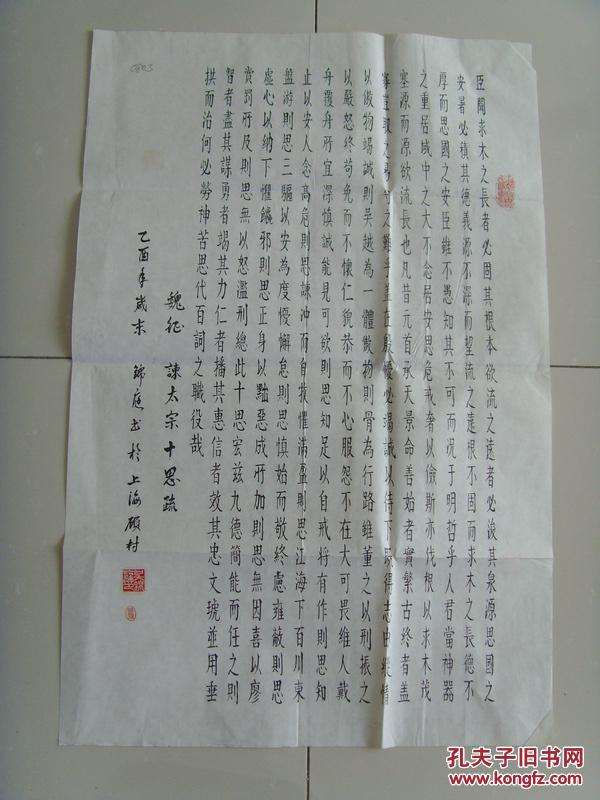 臣聞求木之長者必固其根本欲流之遠者必浚其泉源思國之
安者必積其德義源不深而望流之遠根不固而求木之長德不
厚而思國之安臣雖不愚知其不可而况于明哲乎人君當神器
之重居域中之大不念居安思危戒奢以儉斯亦伐根以求木茂
塞源而源欲流長也凡昔元首承天景命善始者實繁古終者蓋
寡豈取之易守之難乎蓋在殷憂必竭誠以待下既得志由縱情
以傲物竭誠則吴越為一體傲物則骨為行路雖董之以刑振之
以嚴怒終苟免而不懷仁貌恭而不心服怨不在大可畏维人戴
舟覆舟所宜深慎誠能見可欲則思知足以自戒將有作則思知
止以安人念高危則思謙沖而自牧懼滿盈則思江海下百川東
盤游則思三驅以安為度憂懈怠則思慎始而敬終慮雍蔽則思
虚心以納下懼讒邪則思正身以黜惡成所加則思無因喜以廖
賞罰所及則思無以怒濫刑總此十思宏兹九德簡能而任之則
智者盡其謀勇者竭其力仁者播其惠信者效其忠文琥並用垂
拱而治何必勞神苦思代百詞之職役哉
魏征 諫太宗十思疏
乙酉年歲末 錦庭书於上海顾村
0803
孔夫子旧书网
www.kongfz.com